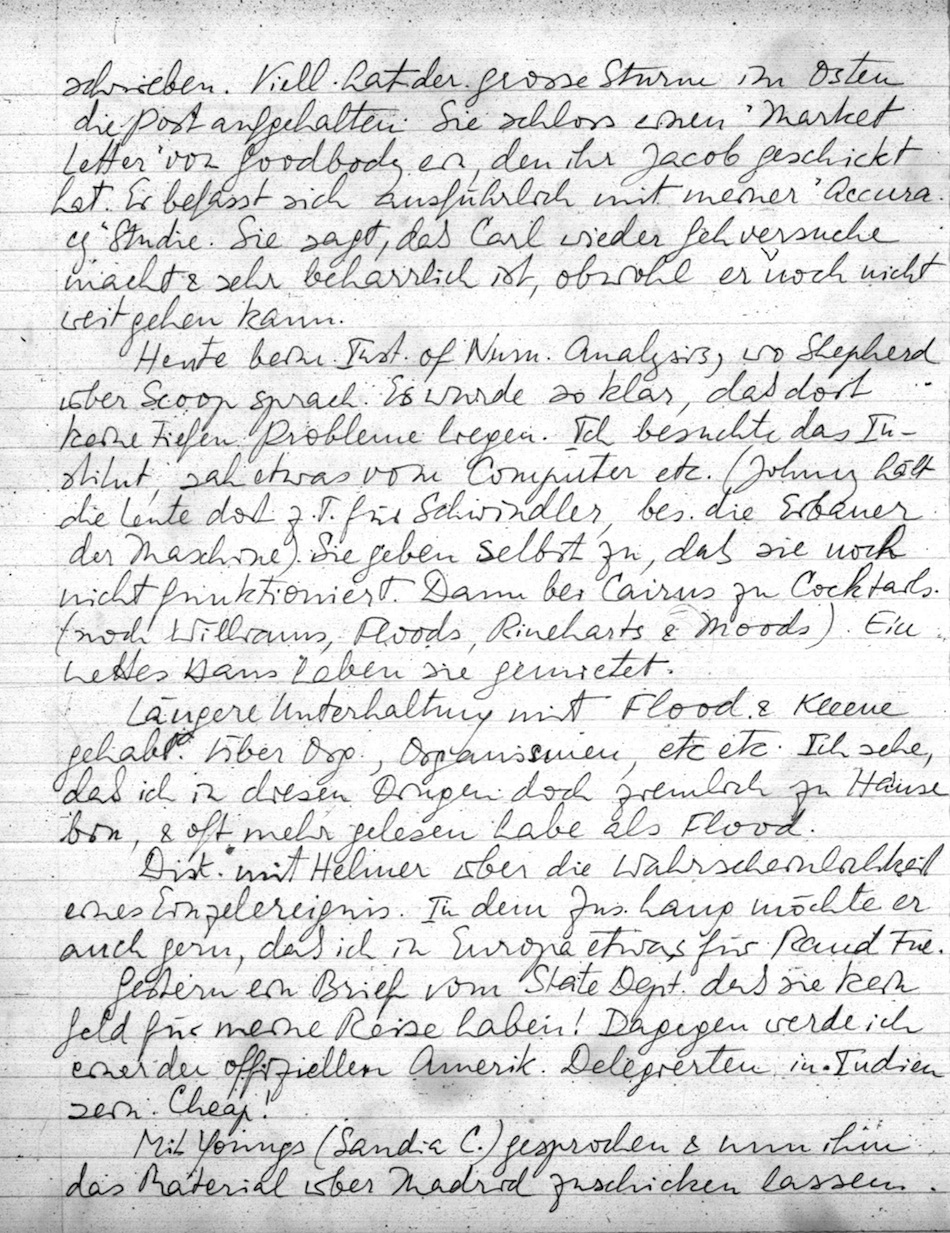 schrieben. Viell. hat der grosse Sturm im Osten
die Post aufgehalten. Sie schloss einen 'Market
Letter' von Goodbody ein, den ihr Jacob geschickt
hat. Er befasst sich ausführlich mit meiner 'Accura-
cy' Studie. Sie sagt, daß Carl wieder Gehversuche
macht & sehr beharrlich ist, obwohl er noch nicht
weit gehen kann.
Heute beim Inst. of Num. Analysis, wo Shepherd
über Scoop sprach. Es wurde so klar, daß dort
keine tiefen Probleme liegen. Ich besuchte das In-
stitut, sah etwas vom Computer etc. (Johnny hält
die Leute dort z.T. für Schwindler, bes. die Erbauer
der Maschine). Sie geben selbst zu, daß sie noch
nicht funktioniert. Dann bei Cairns zu Cocktails.
(noch Williams, Floods, Rineharts & Moods). Ein
nettes Haus haben sie gemietet.
Längere Unterhaltung mit Flood & Kleene
gehabt. Über Org., Organismen, etc etc. Ich sehe,
daß ich in diesen Dingen doch ziemlich zu Hause
bin, & oft mehr gelesen habe als Flood.
Disk. mit Helmer über die Wahrscheinlichkeit
eines Einzelereignis. In dem Zus.hang möchte er
auch gern, daß ich in Europa etwas für Rand tue.
Gestern ein Brief vom State Dept. daß sie kein
Geld für meine Reise haben! Dagegen werde ich
einer der offiziellen Amerik. Delegierten in Indien
sein. Cheap!
Mit Youngs (Sandia C.) gesprochen & nun ihm
das Material über Madrid zuschicken lassen.